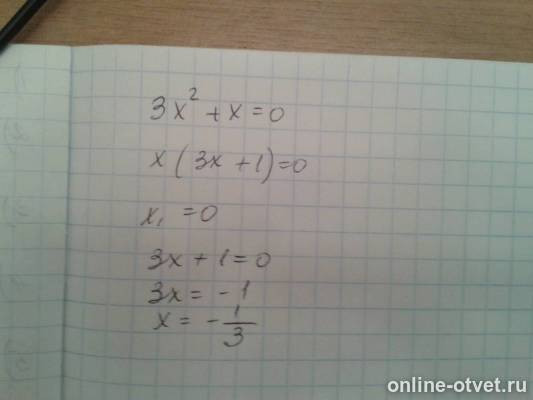 3x² + x = 0
x (3x + 1) = 0
x₁ = 0
3x + 1 = 0
3x = - 1
x = - 1/3
online-otvet.ru